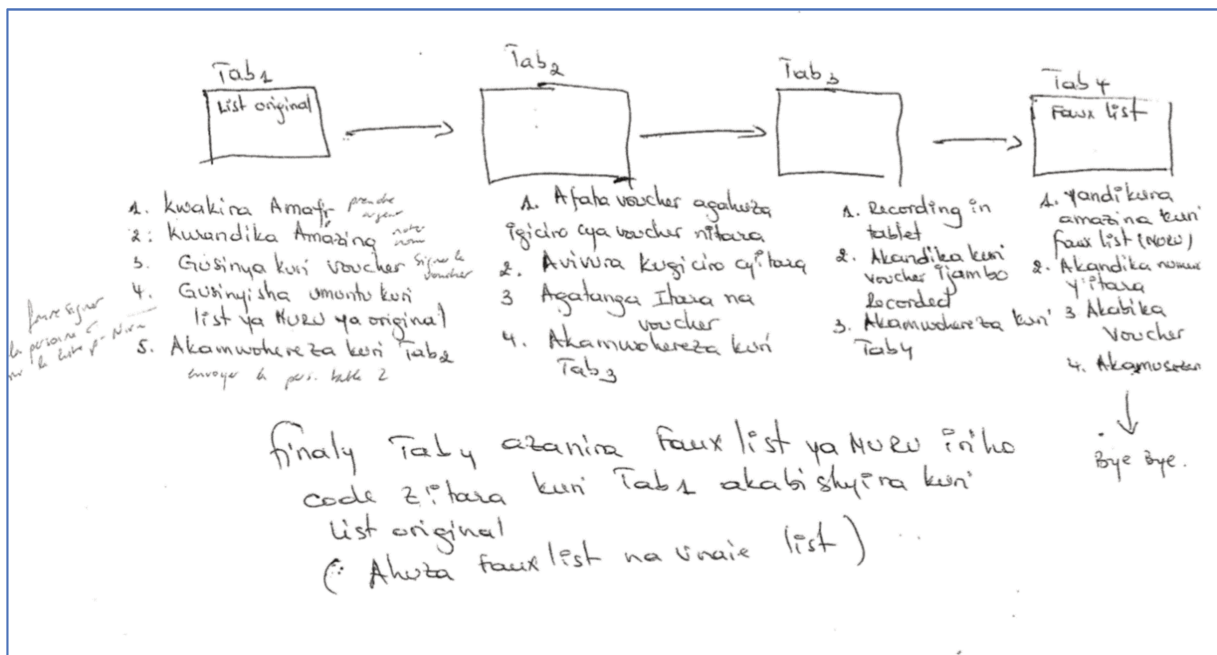 Tab1
List original
1. Kwakira Amafr prendre argent
2. Kwandika Amazina noter nom
3. Gusinya kuri voucher Signer le voucher
4. Gusinyisha umuntu kuri
list ya NURU ya original
Faire signer
la personne
sur la liste
5. Akamwohereza kuri Tab2
envoyer la pers. table 2
Tab2
1. Afata voucher agahuza
igiciro cya voucher nitara
2. Avivura kugiciro cyitara
3 Agatanga Itara na
voucher
4. Akamwohereza kuri
Tab3
Tab3
1. Recording in
tablet
2. Akandika kuri
voucher ijambo
Recorded
3. Akamwohereza kuri
Tab4
Tab4
Faux list
1. yandikura
amazina kuri
faux list (NURU)
2. Akandika numur
y'itara
3 Akabika
Voucher
4. Akamusezer
Bye Bye.
finaly Tab4 azanira Faux list ya NURU iriho
code z'itara kuri Tab1 akabishyira kuri
List original
(Ahuza faux list na vraie list)